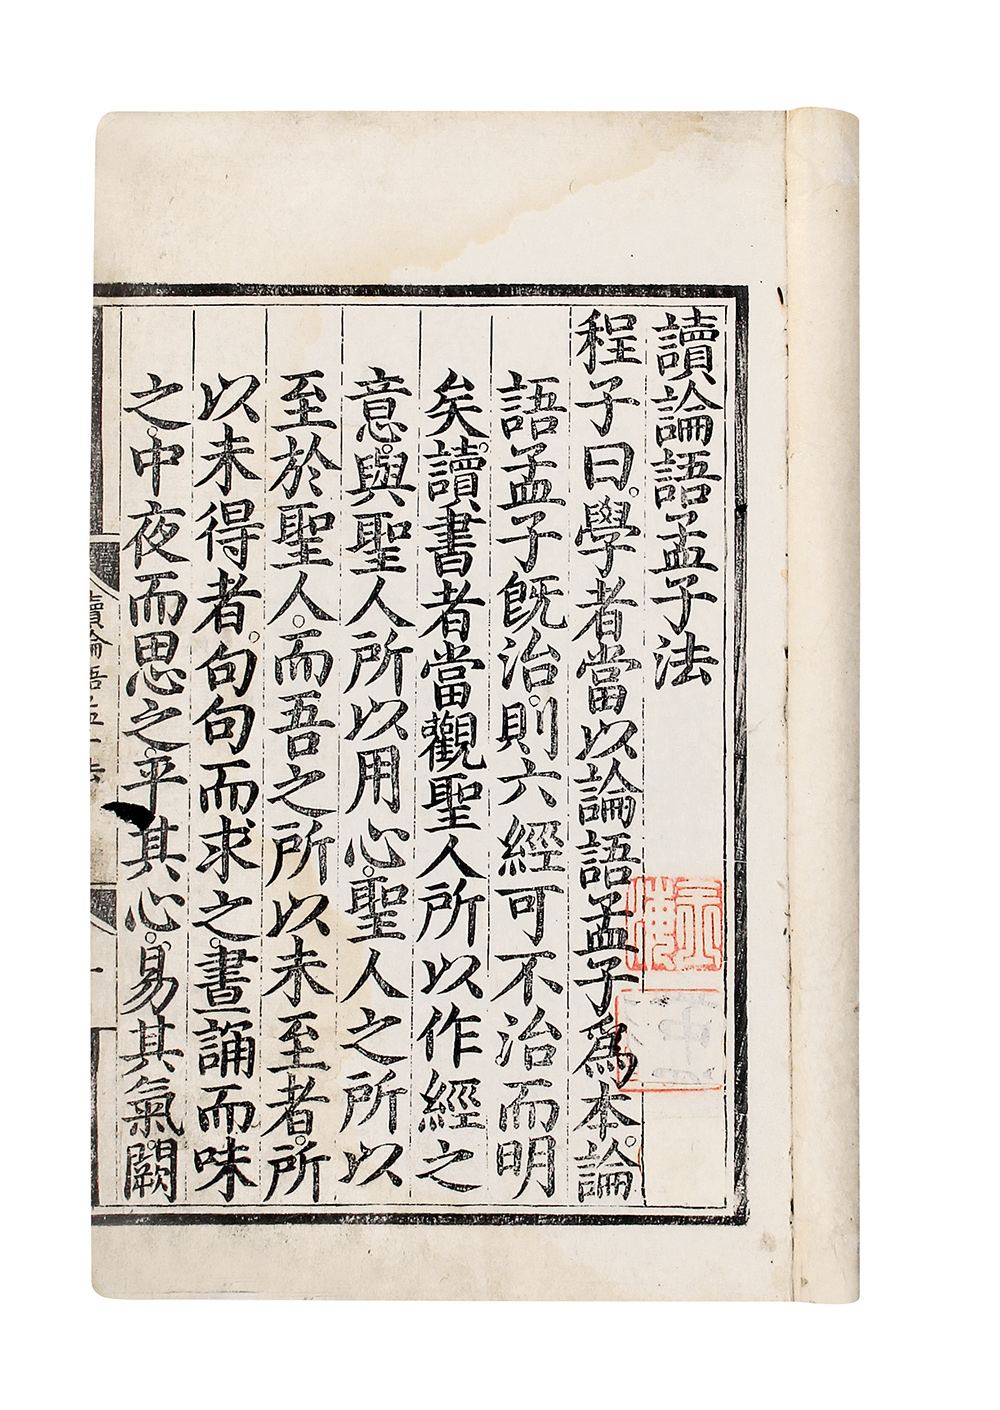 讀論語孟子法
程子曰學者當以論語孟子爲本論
語孟子既治則六經可不治而明
矣讀書者當觀聖人所以作經之
意與聖人所以用心聖人之所以
至於聖人而吾之所以未至者所
以未得者句句而求之晝誦而味
之中夜而思之平其心易其氣闕
讀論語孟子法
一